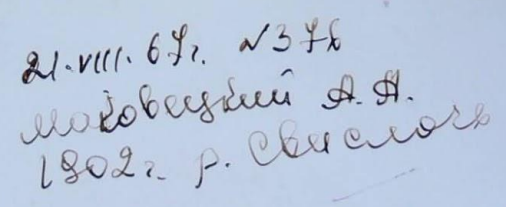 21.VIII.67г. №376
Маковецкий А.А.
1902г. р. Свислочь